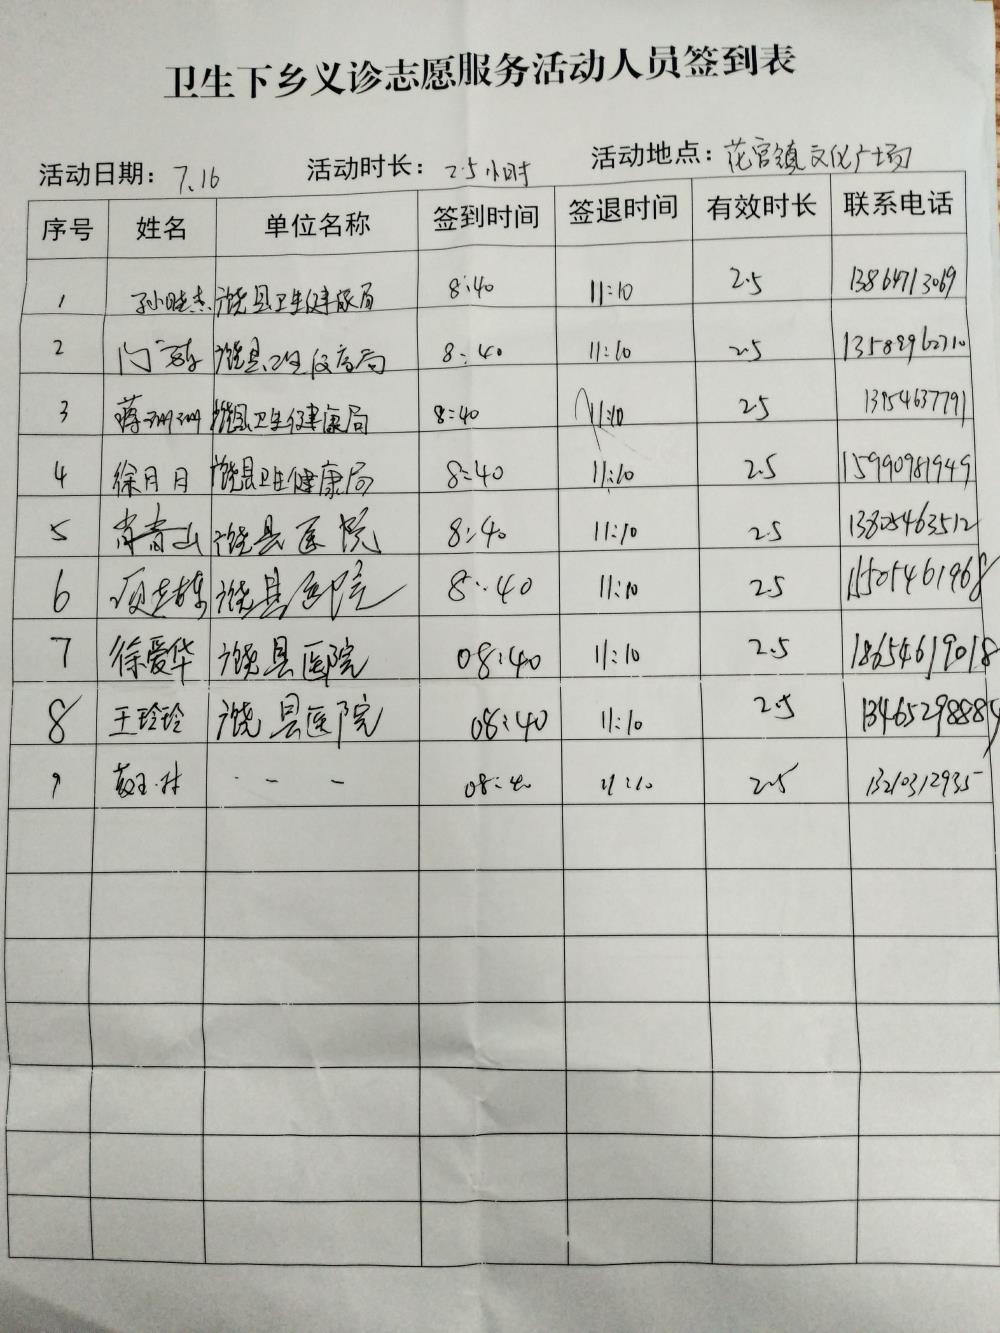 卫生下乡义诊志愿服务活动人员签到表
活动日期：7.16 活动时长：2.5小时 活动地点：花官镇文化广场
序号 姓名 单位名称 签到时间 签退时间 有效时长 联系电话
1 孙晓杰 饶县卫生健康局 8:40 11:10 2.5 13864713069
2 饶县卫生健康局 8:40 11:10 2.5
3 蒋珊珊 饶县卫生健康局 8:40 11:10 2.5 13954637791
4 徐月月 饶县卫生健康局 8:40 11:10 2.5 15990981949
5 肖青山 饶县医院 8:40 11:10 2.5 13805463512
6 饶县医院 8:40 11:10 2.5 1505461968
7 徐爱华 饶县医院 08:40 11:10 2.5 18654619018
8 王玲玲 饶县医院 08:40 11:10 2.5 13465298889
9 - - - 08:40 11:10 2.5 13210312935